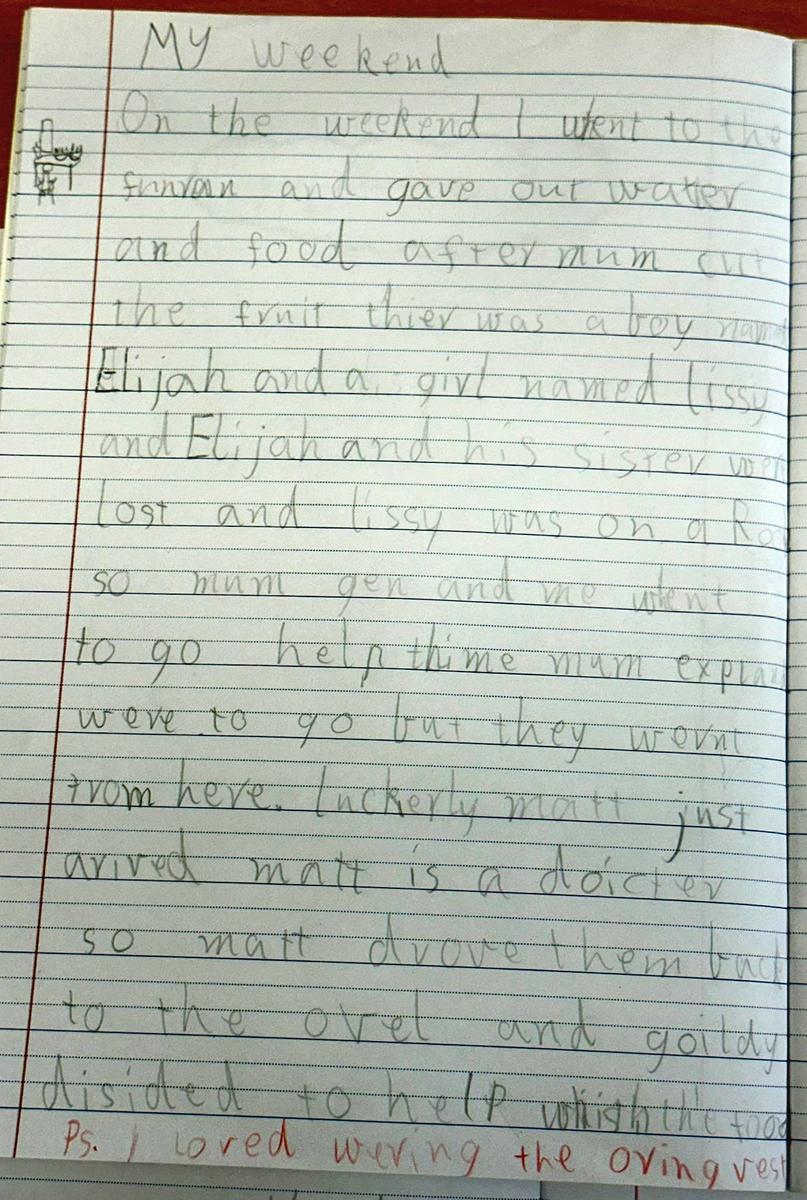 My weekend
On the weekend I went to the
funran and gave out watter
and food after mum cut
the fruit thier was a boy named
Elijah and a girl named lissy
and Elijah and his sister wer
lost and lissy was on a Roa
so mum gen and me went
to go help thime mum explain
were to go but they wernt
from here. luckerly matt just
arived matt is a doicter
so matt drove them back
to the ovel and goildy
disided to help whith the food
Ps. I loved wering the oring vest